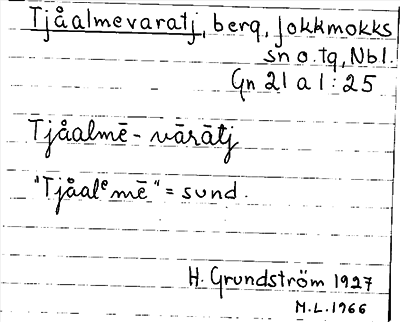 Tjåalmevaratj, berg, Jokkmokks
sn o. tg, Nbl.
Gn 21 a 1:25
Tjåalmē - vārātj
"Tjåalᵉmē" = sund.
H. Grundström 1927
M.L. 1966